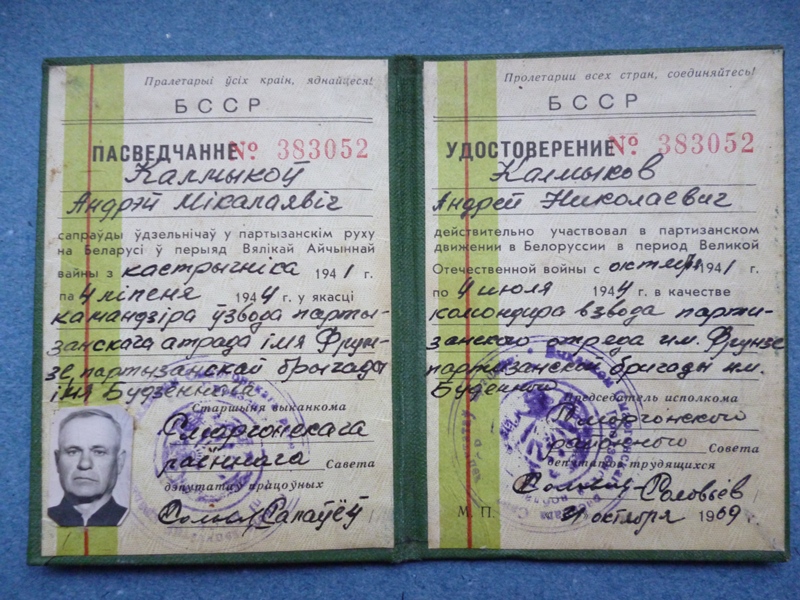 Пралетарыі ўсіх краін, яднайцеся!
БССР
ПАСВЕДЧАННЕ № 383052
Калмыкоў
Андрэй Мікалаявіч
сапраўды ўдзельнічаў у партызанскім руху
на Беларусі ў перыяд Вялікай Айчыннай
вайны з кастрычніка 1941 г.
па 4 ліпеня 1944 г. у якасці
камандзіра ўзвода парты-
занскага атрада імя Фрун-
зе партызанскай брыгады
імя Будзённага
Старшыня выканкома
Смаргонскага
раённага Савета
дэпутатаў працоўных
Салаўёў
Пролетарии всех стран, соединяйтесь!
БССР
УДОСТОВЕРЕНИЕ № 383052
Калмыков
Андрей Николаевич
действительно участвовал в партизанском
движении в Белоруссии в период Великой
Отечественной войны с октября 1941 г.
по 4 июля 1944 г. в качестве
командира взвода парти-
занского отряда им. Фрунзе
партизанской бригады им.
Буденного
Председатель исполкома
Сморгонского
районного Совета
депутатов трудящихся
Соловьёв
М. П. октября 1969 г.